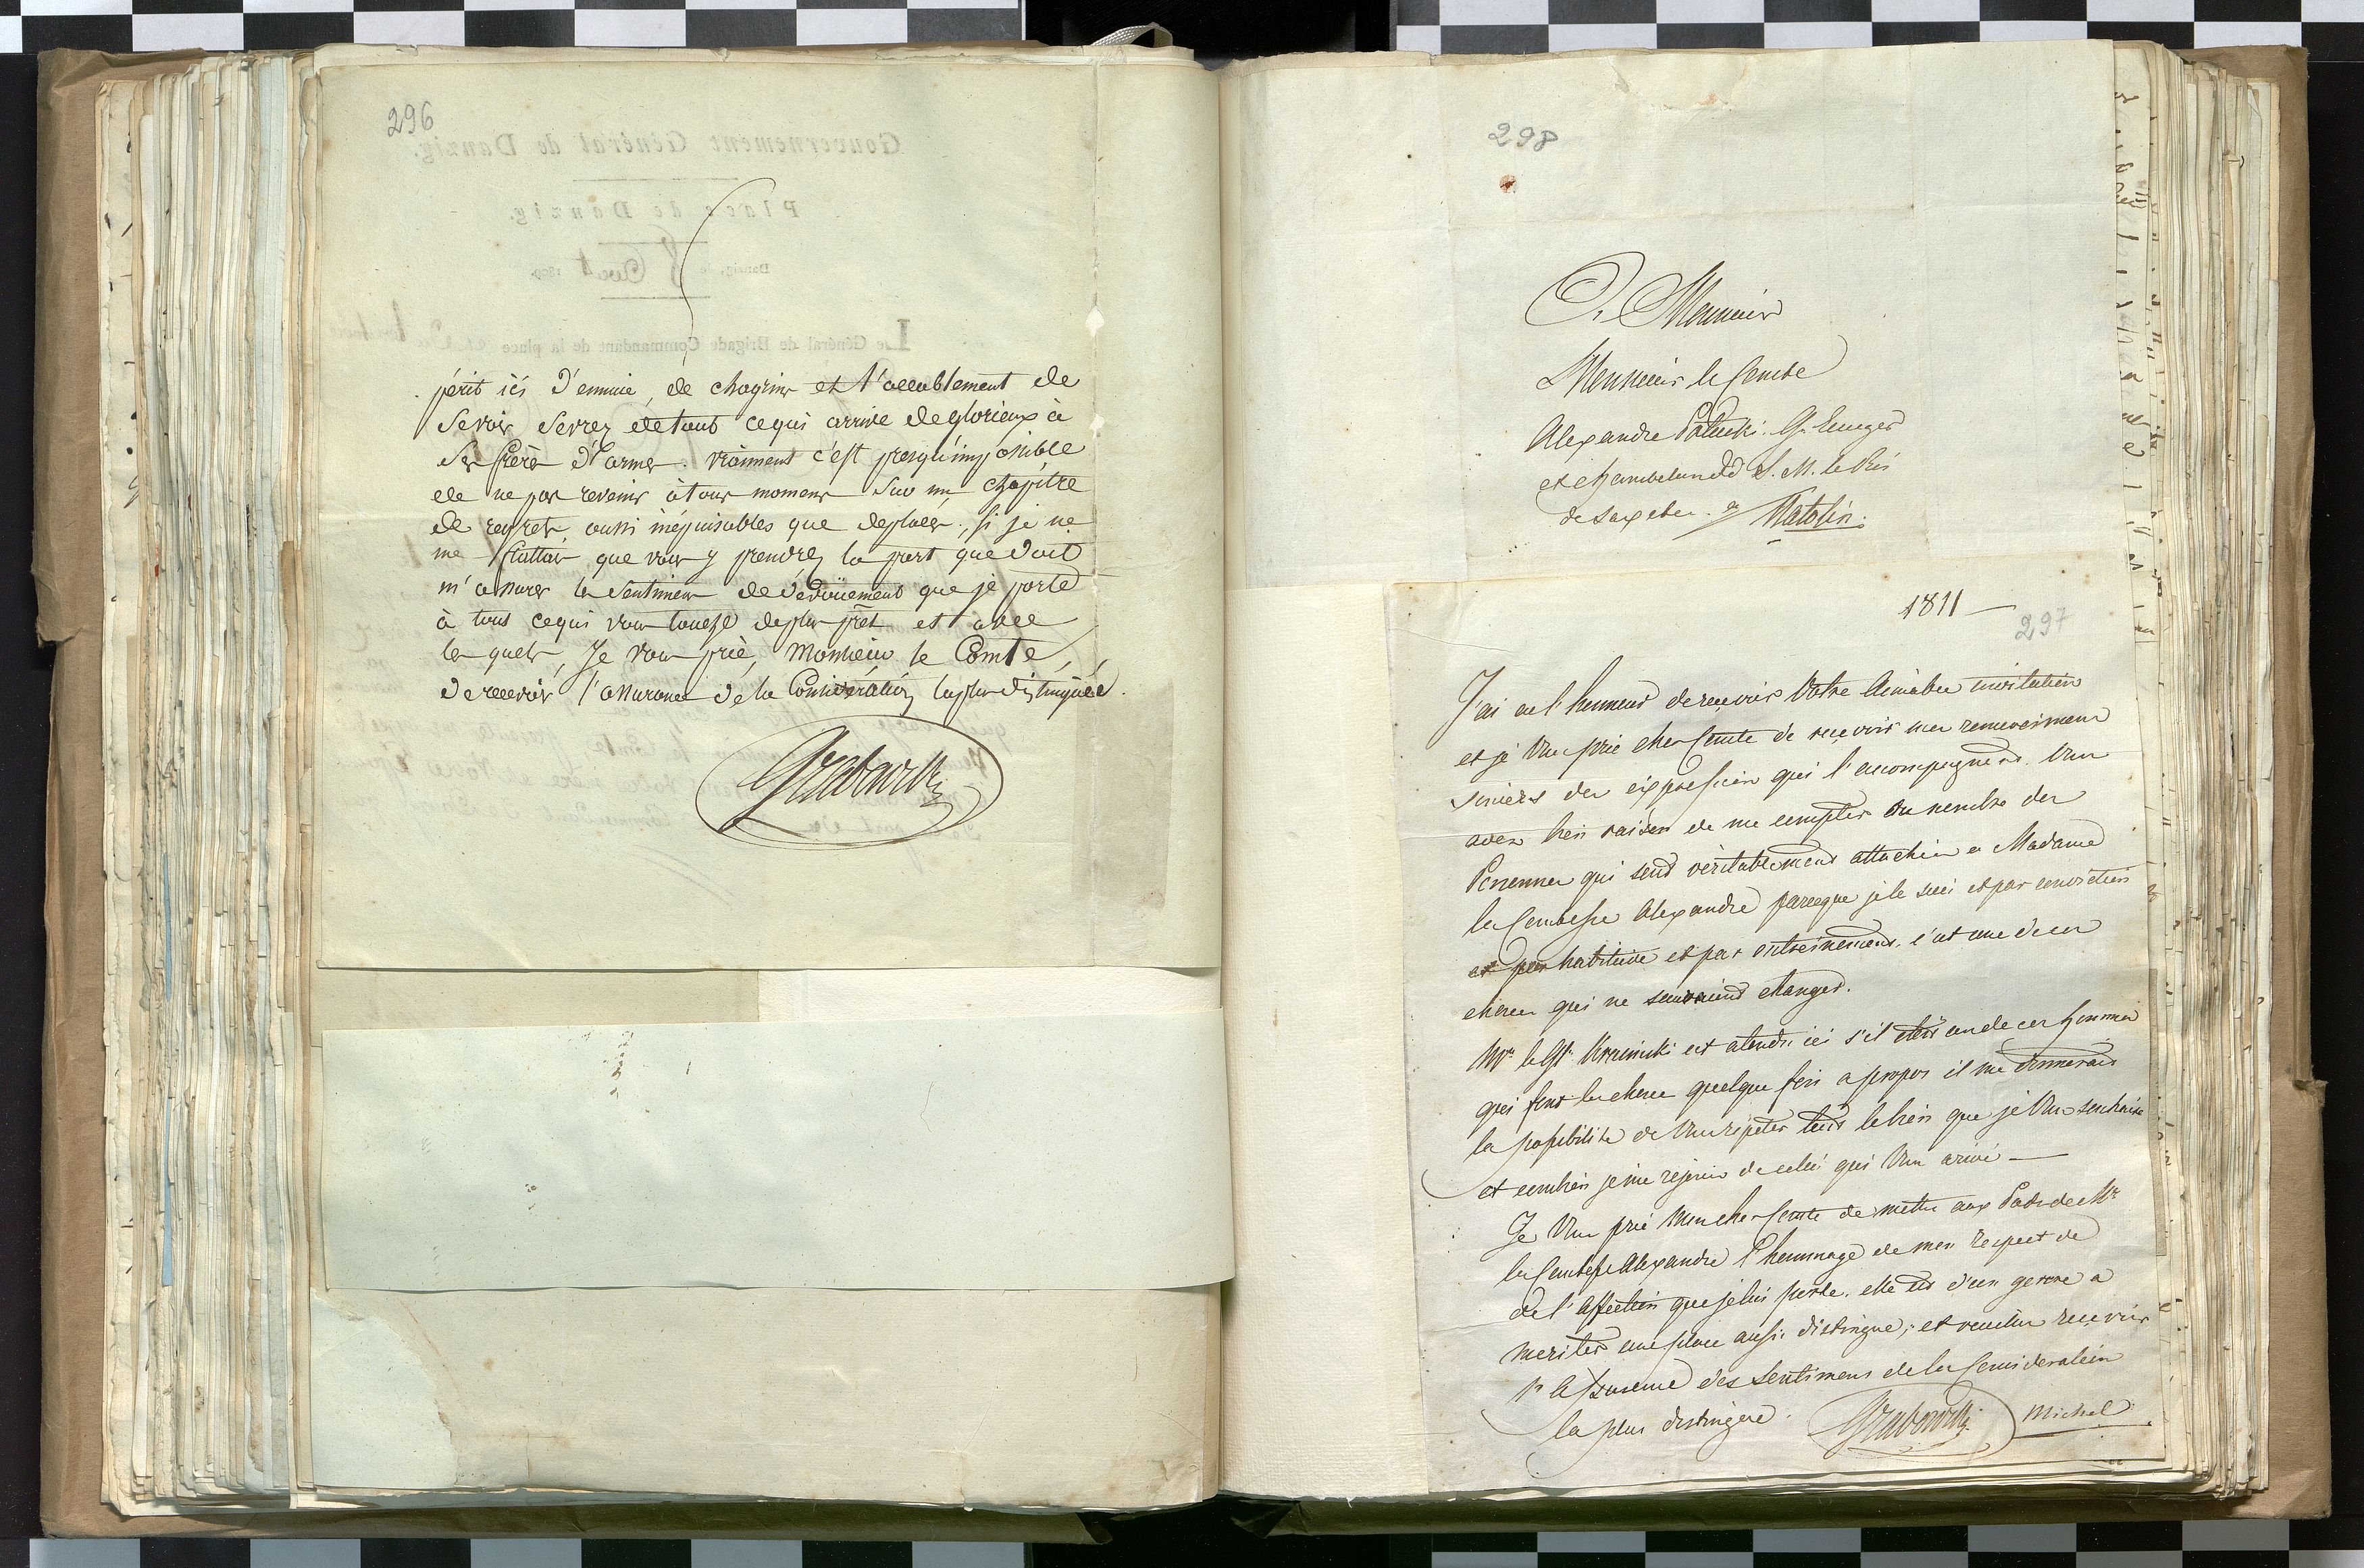 296
périt ici d'ennuie, de chagrins et d'accablement de
se voir sevrez de tous ce qui arrive de glorieux à
ses frères d'armes. vraiment c'est presqu'impossible
de ne pas revenir à tous momens sur un chapitre
de regrets, aussi inépuisables que déplacés, si je ne
me flattais que vous y prendrez la part que doit
m'assurer les sentimens de dévoüement que je porte
à tous ce qui vous touche de plus près et avec
les quels, Je vous prie, Monsieur le Comte,
de recevoir l'assurance de la Considération la plus distinguée.
Grabowski
298
A Monsieur
Monsieur le Comte
Alexandre Potocki G.
et chambelan de S. M. le Roi
de Saxe &c. a Natolin.
1811 —
297
J'ai eu l'honneur de recevoir Votre Aimable invitation
et je Vous prie cher Comte de recevoir mes remercimens
sinceres des expressions qui l'accompagnent. Vous
avez bien raison de me compter au nombre des
Personnes qui sont véritablement attachées a Madame
la Comtesse Alexandre parceque je le suis et par conviction
et par habitude et par entrainement. c'est une de ces
choses qui ne sauraient changer.
Mr le Gl. Krasinski est atendu ici s'il était un de ces hommes
qui font les choses quelque fois a propos il me donnerait
la possibilité de Vous repeter tout le bien que je Vous souhaite
et combien je me rejouis de celui qui Vous arive —
Je Vous prie Mon cher Comte de mettre aux Pieds de Me
la Comtesse Alexandre l'hommage de mon respect de
de l'Affection que je lui porte. elle est d'un genre a
meriter une place aussi distingué; et veuillez recevoir
l'Assurence des sentimens de la Consideration
la plus distinguée.
Grabowski Michel